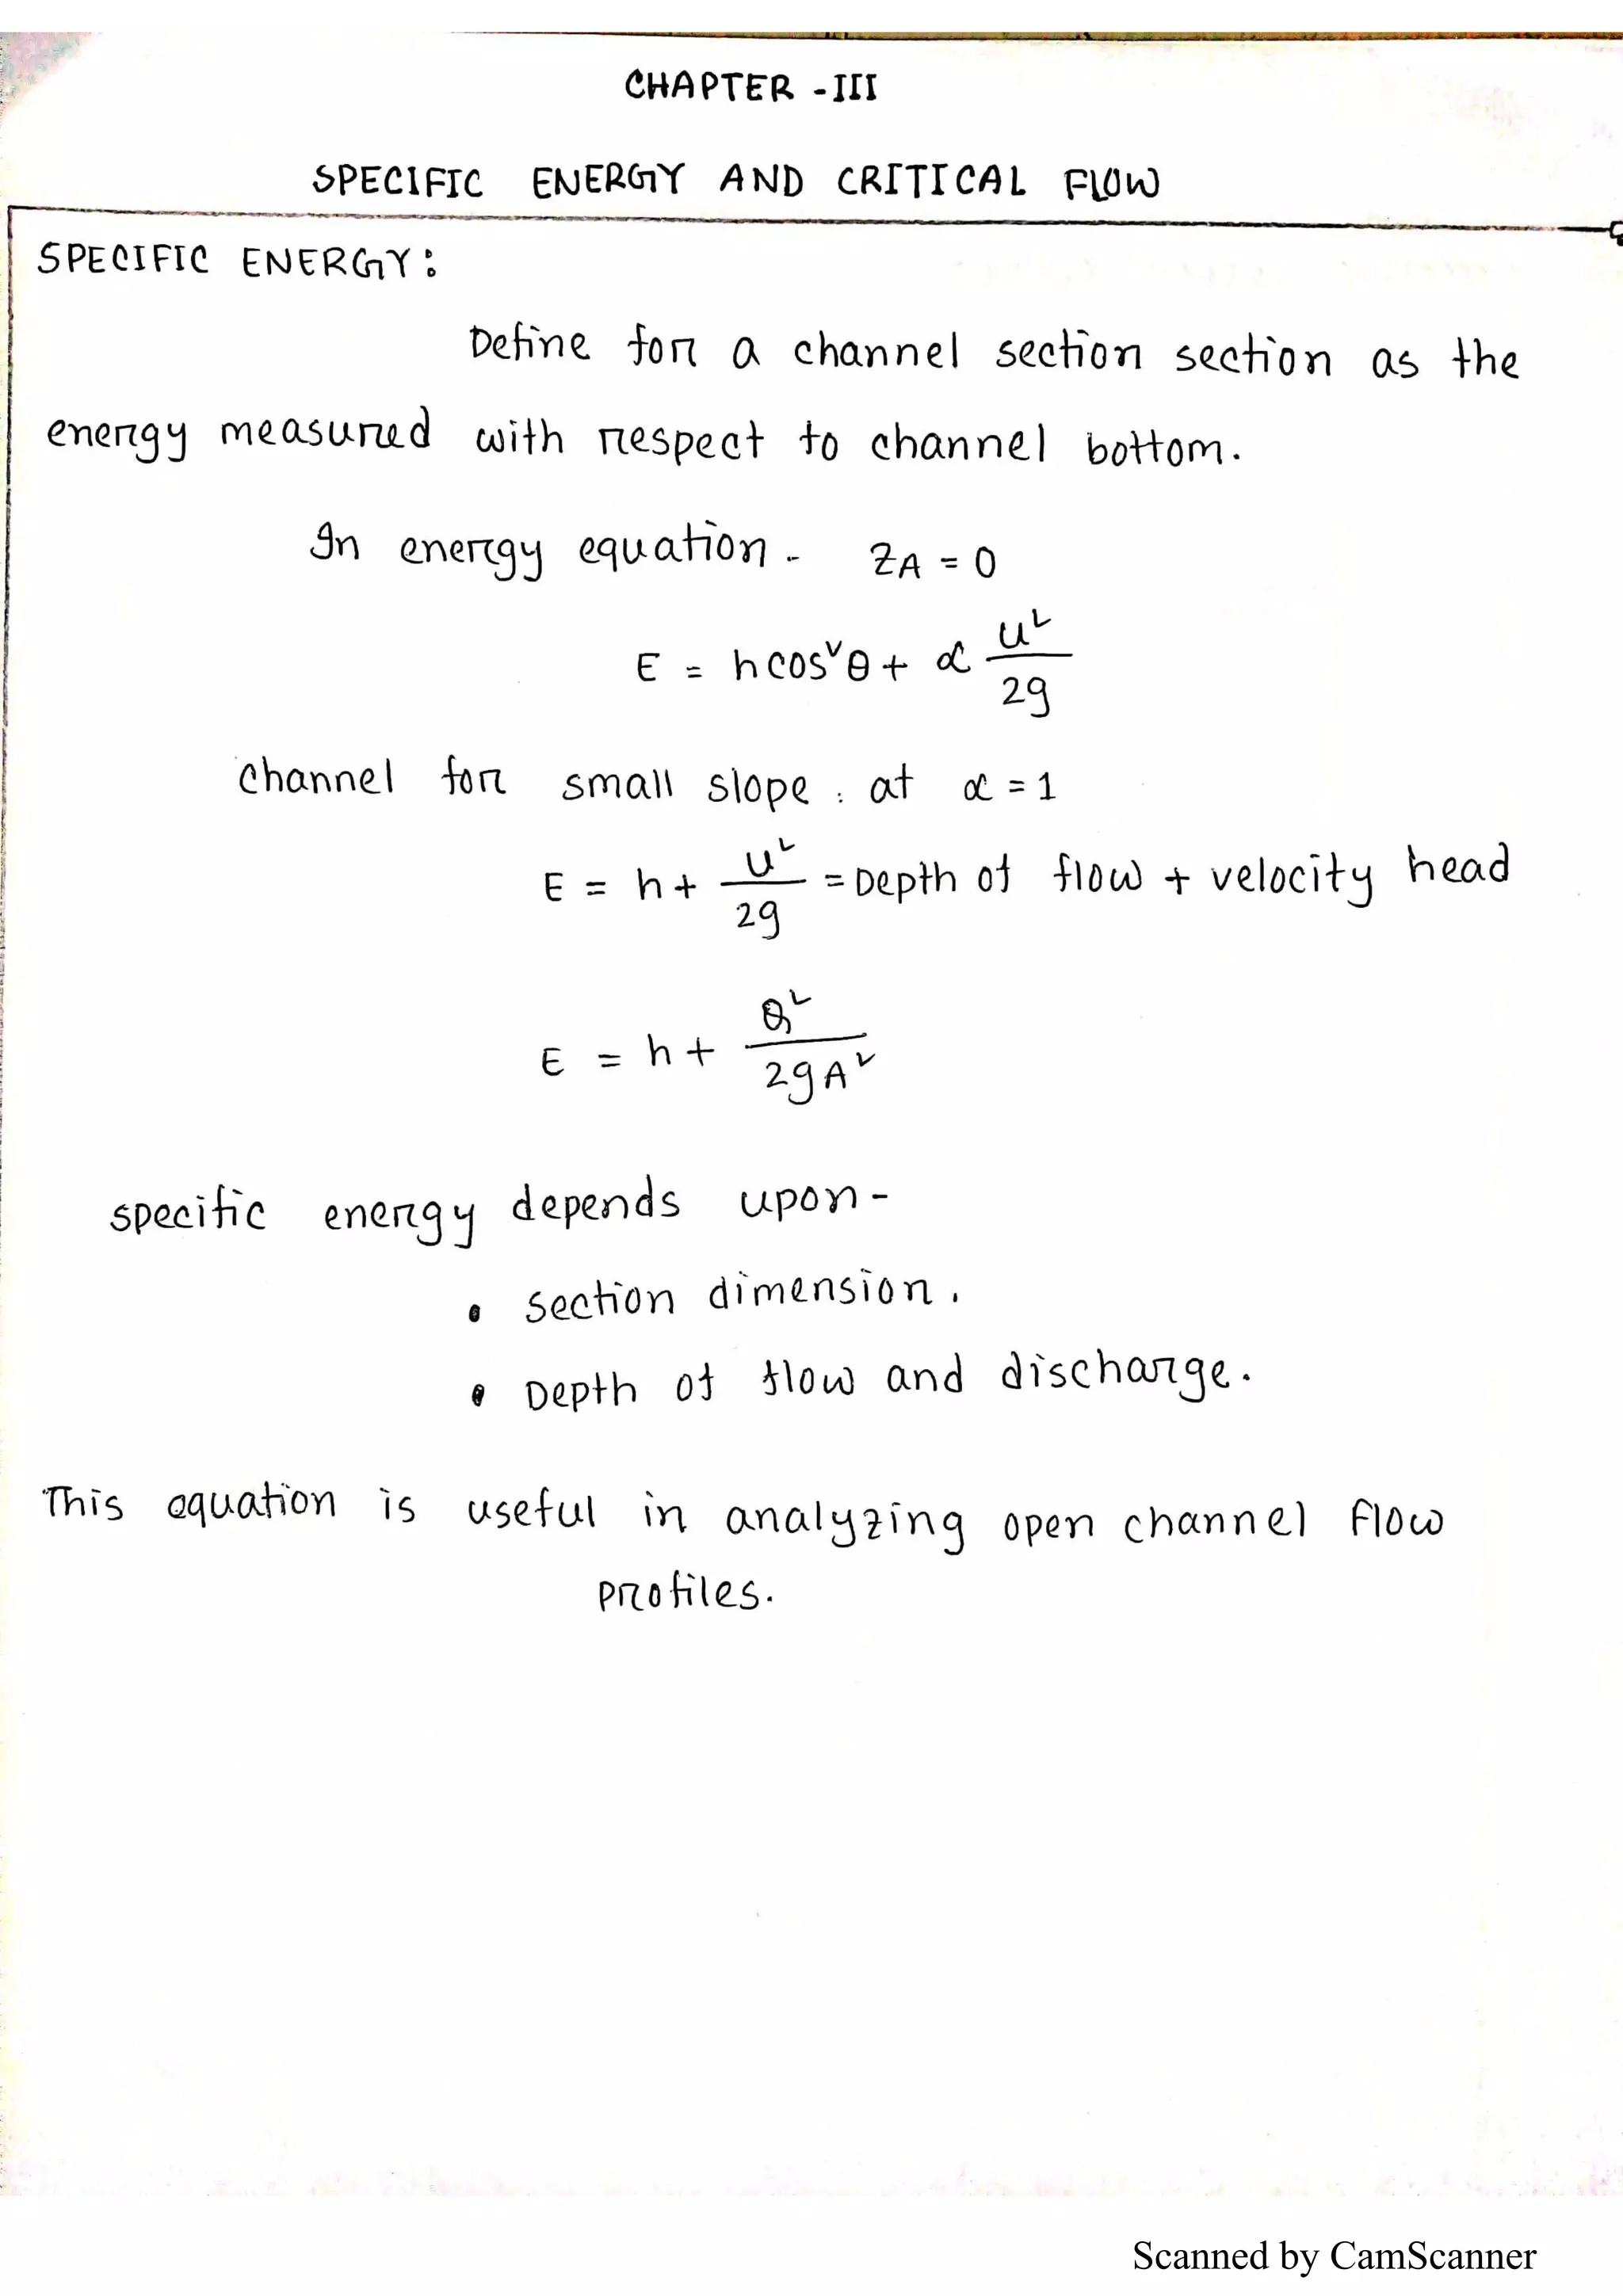 CHAPTER -III
SPECIFIC ENERGY AND CRITICAL FLOW
SPECIFIC ENERGY:
Define for a channel section section as the
energy measured with respect to channel bottom.
In energy equation - Z_A = 0
E = h cos²θ + α U²/2g
channel for small slope : at α = 1
E = h + U²/2g = Depth of flow + velocity head
E = h + Q²/2gA²
specific energy depends upon-
• section dimension.
• Depth of flow and discharge.
This equation is useful in analyzing open channel flow
profiles.
Scanned by CamScanner